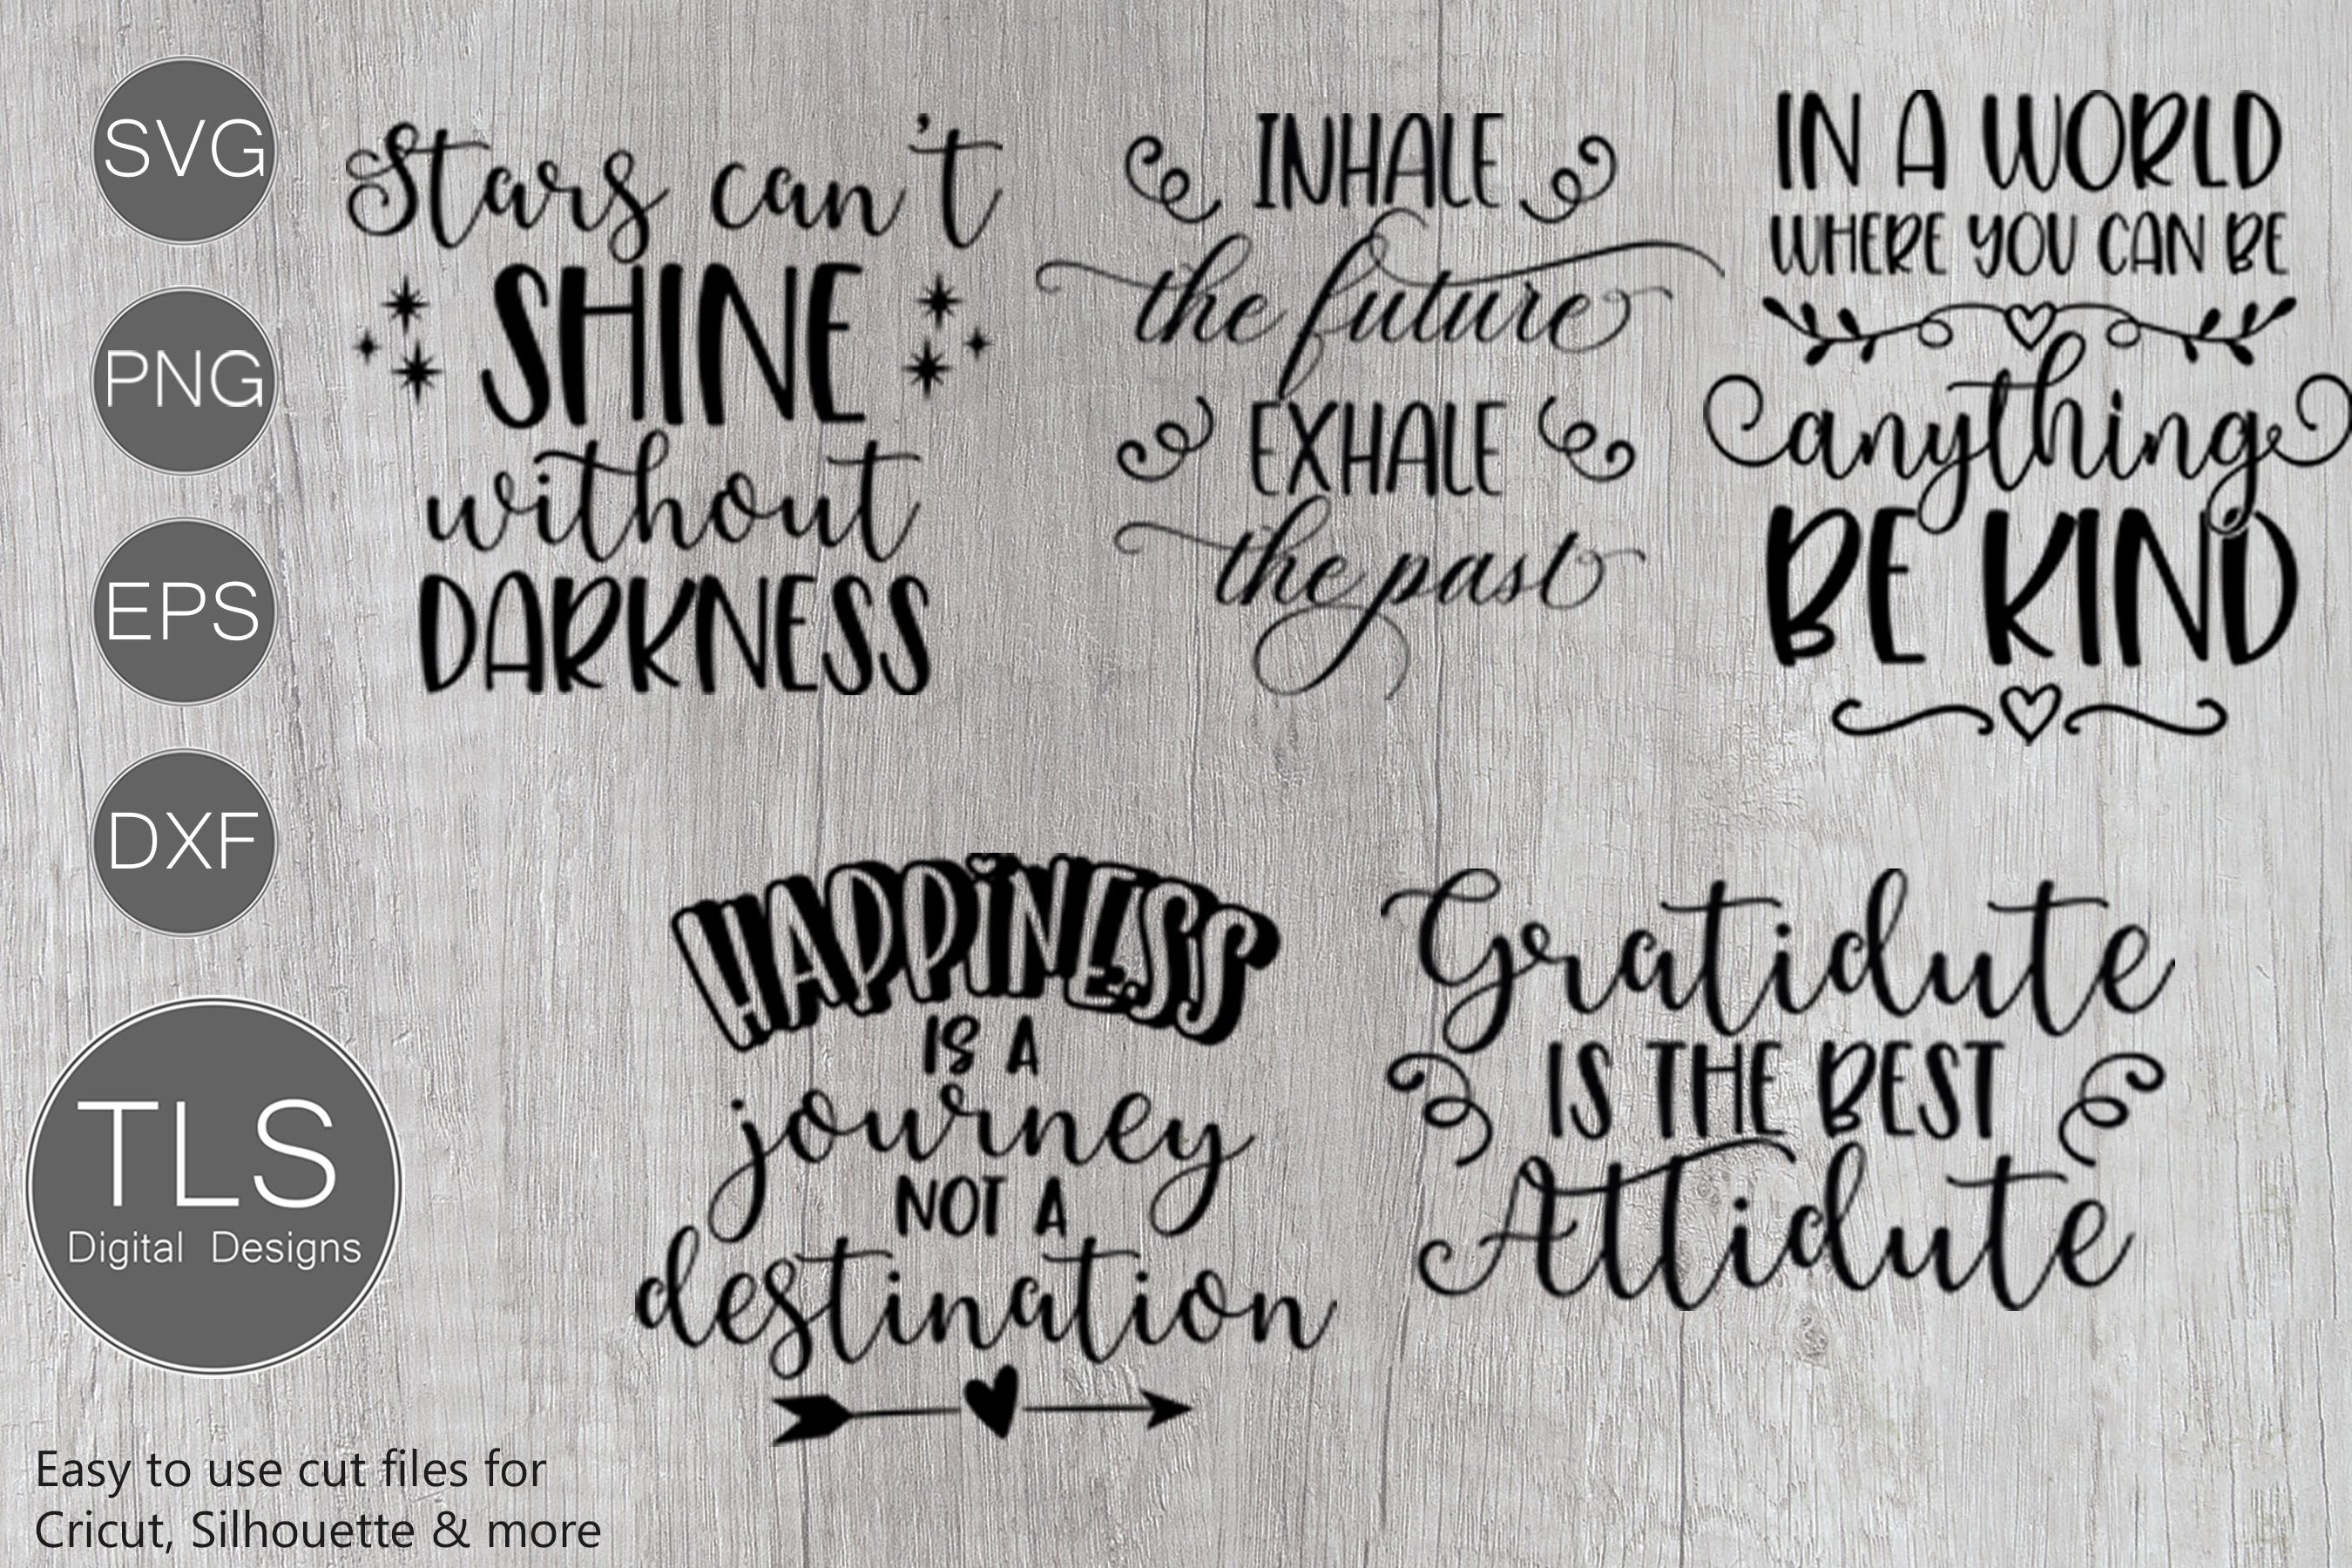 SVG
PNG
EPS
DXF
TLS
Digital Designs
Easy to use cut files for
Cricut, Silhouette & more
Stars can't
SHINE
without
DARKNESS
INHALE
the future
EXHALE
the past
IN A WORLD
WHERE YOU CAN BE
anything
BE KIND
HAPPiNESS
IS A
journey
NOT A
destination
Gratidute
IS THE BEST
Attidute